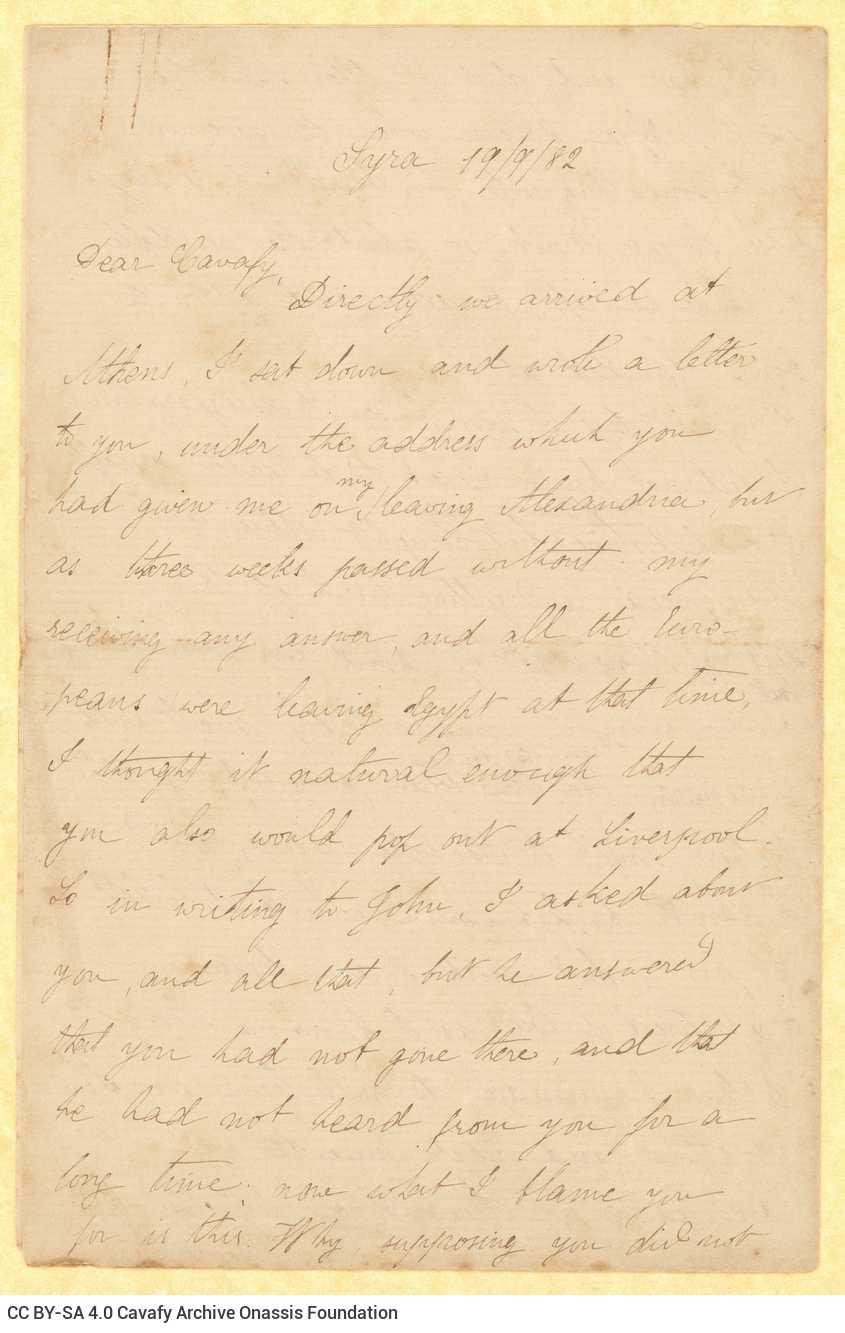 Syra 19/9/82
Dear Cavafy,
Directly we arrived at
Athens, I sat down and wrote a letter
to you, under the address which you
had given me on my leaving Alexandria, but
as three weeks passed without my
receiving any answer, and all the Euro-
peans were leaving Egypt at that time,
I thought it natural enough that
you also would pop out at Liverpool.
So in writing to John, I asked about
you, and all that, but he answered
that you had not gone there, and that
he had not heard from you for a
long time; now what I blame you
for is this. Why, supposing you did not
CC BY-SA 4.0 Cavafy Archive Onassis Foundation